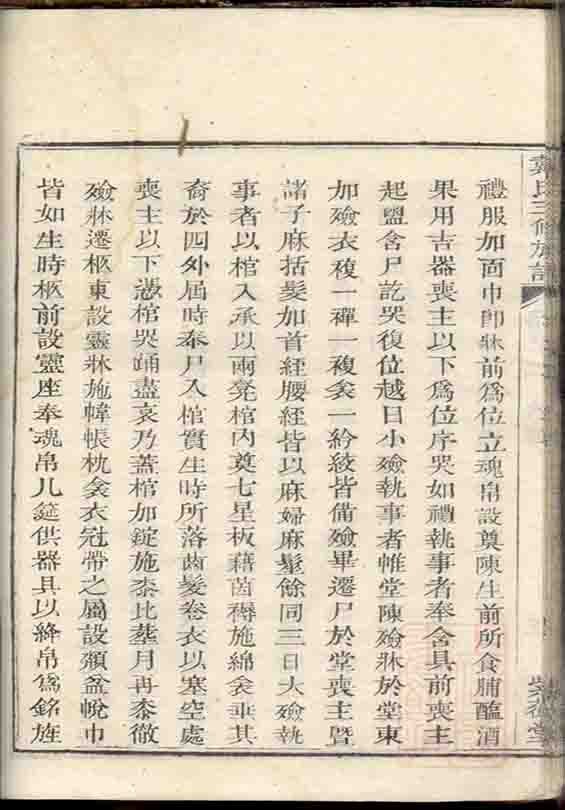 禮服加面巾卽牀前爲位立魂帛設奠陳生前所食脯醢酒
果用吉器喪主以下爲位序哭如禮執事者奉含具前喪主
起盥含尸訖哭復位越日小殮執事者帷堂陳殮牀於堂東
加殮衣複一禪一複衾一紟絞皆備殮畢遷尸於堂喪主暨
諸子麻括髮加首絰腰絰皆以麻婦麻髽餘同三日大殮執
事者以棺入承以兩凳棺內奠七星板藉茵褥施綿衾垂其
裔於四外屆時奉尸入棺實生時所落齒髮卷衣以塞空處
喪主以下憑棺哭踊盡哀乃蓋棺加錠施桼比葢月再桼徹
殮牀遷柩東設靈牀施幃帳枕衾衣冠帶之屬設頮盆帨巾
皆如生時柩前設靈座奉魂帛几筵供器具以絳帛爲銘旌
氏三修族譜